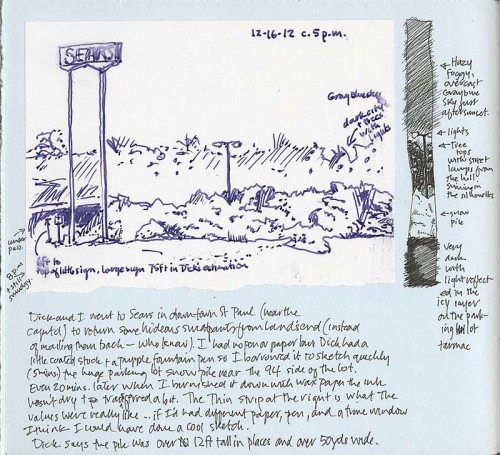 12-16-12 c. 5 p.m.
SEARS
Gray blue sky
dark city
+ trees
with
lights
← Hazy
Foggy,
overcast
Gray blue
sky just
after sunset.
← lights
← Tree
tops
with street
lamps from
the hill
shining in
the silhouettes
← snow
pile
Very
dark
with
light reflect-
ed in the
icy layer
on the park-
ing lot
tarmac
under
pass
8 p.m.
+ still
smudgy.
left to
top of little sign, large sign 75ft in Dick's estimation
Dick and I went to Sears in downtown St Paul (near the
capitol) to return some hideous sweatpants from Landsend (instead
of mailing them back – who knew). I had no pen or paper but Dick had a
little coated stock + a purple fountain pen so I borrowed it to sketch quickly
(5 mins) the huge parking lot snow pile near the 94 side of the lot.
Even 20 mins. later when I burnished it down with wax paper the ink
wasn't dry + transferred a bit. The Thin strip at the right is what the
values were really like... if I'd had different paper, pen, and a time window
I think I would have done a cool sketch.
Dick says the pile was over 12ft tall in places and over 50yds wide.